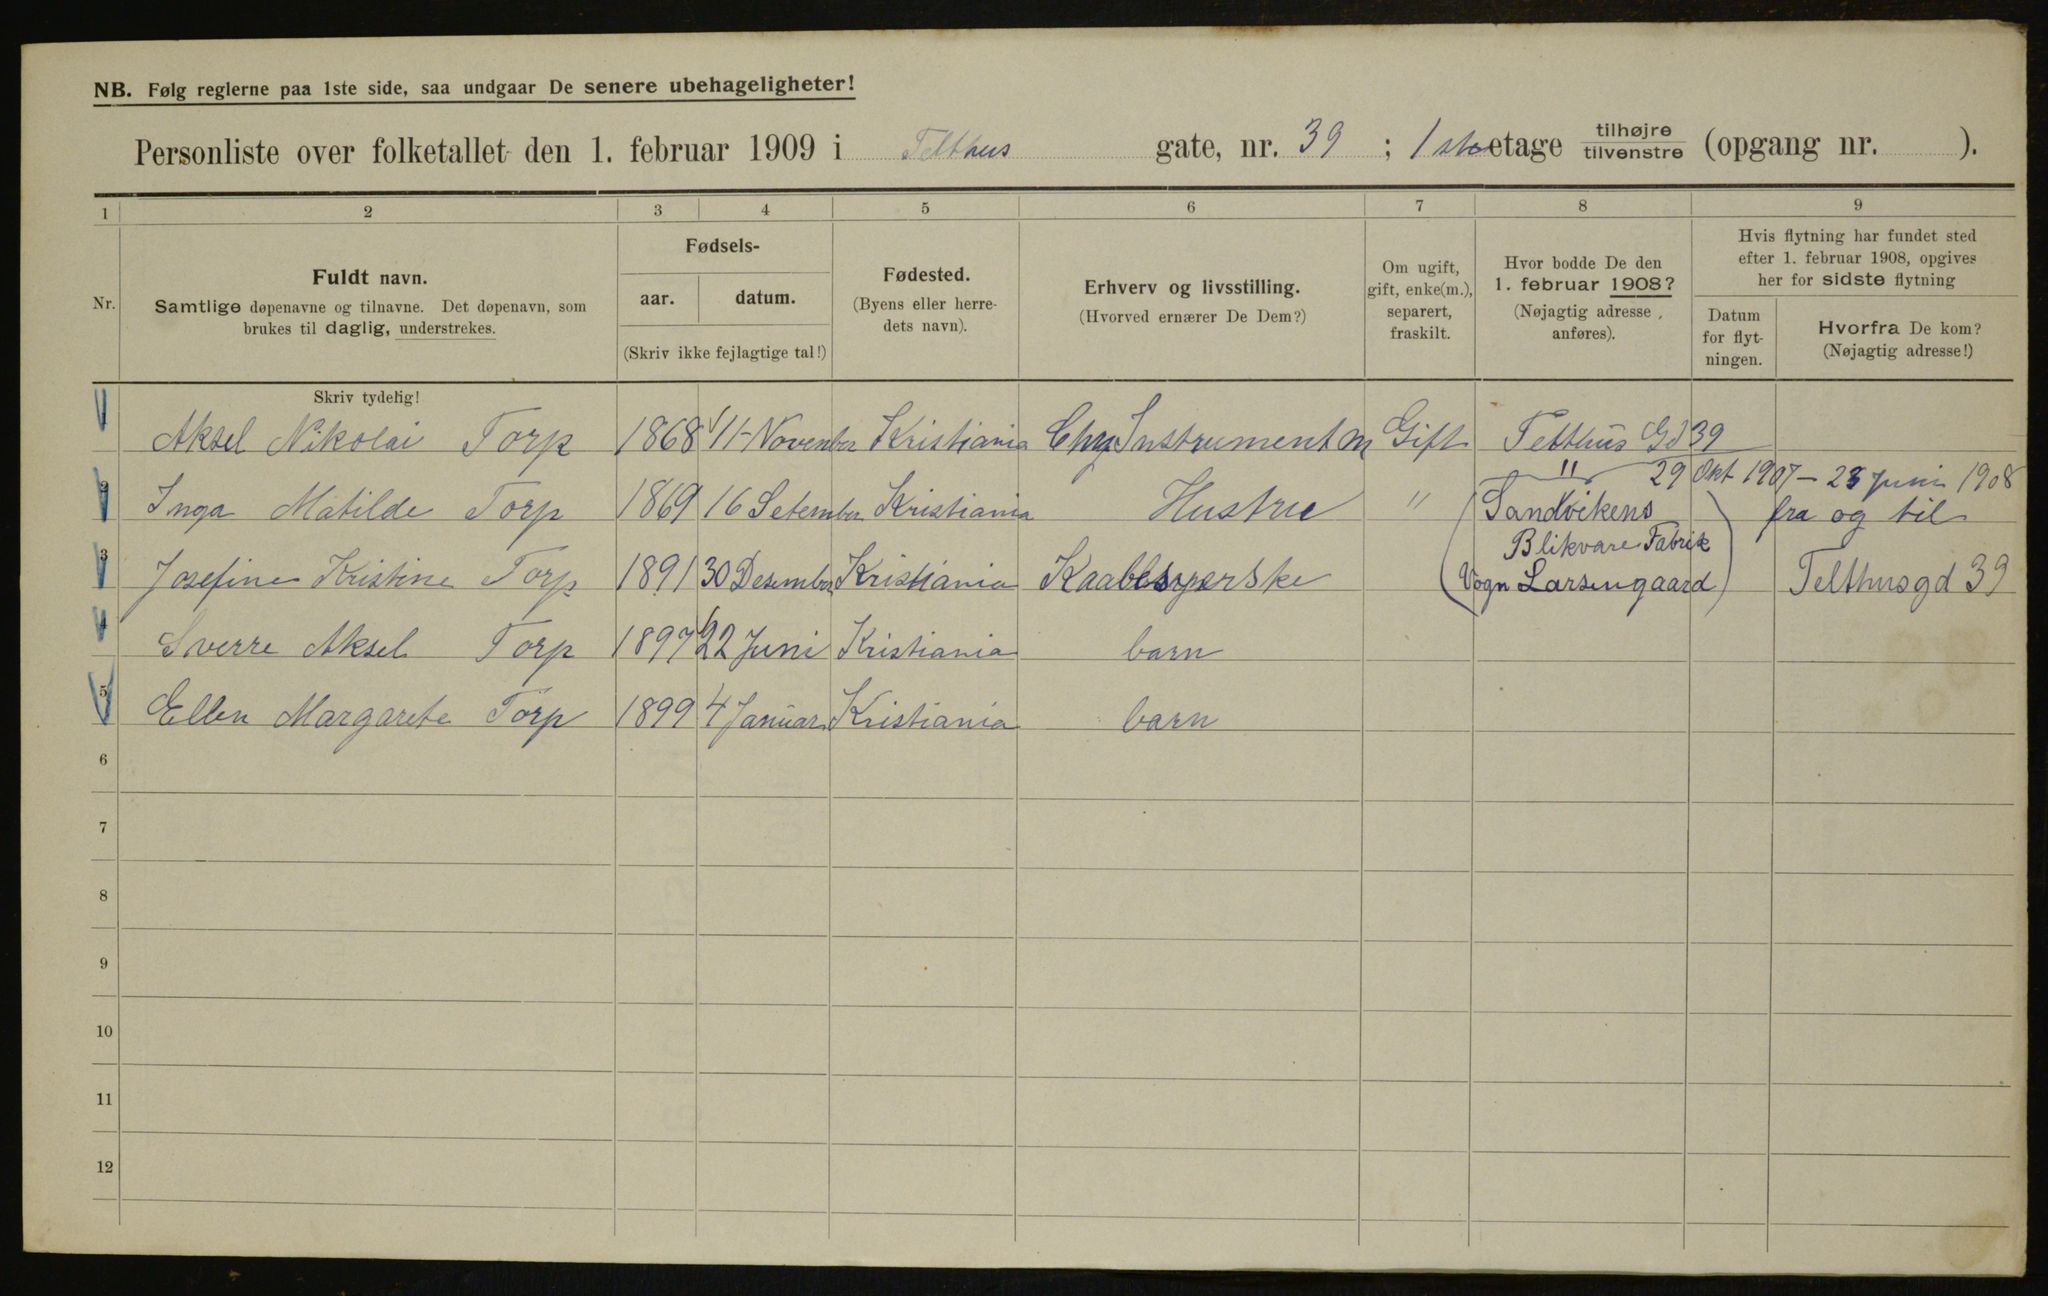 NB. Følg reglerne paa 1ste side, saa undgaar De senere ubehageligheter!
Personliste over folketallet den 1. februar 1909 i Telthus gate, nr. 39 ; 1ste etage tilhøjre/tilvenstre (opgang nr. ).
1 2 3 4 5 6 7 8 9
Nr.
Fuldt navn.
Samtlige døpenavne og tilnavne. Det døpenavn, som
brukes til daglig, understrekes.
Fødsels-
aar. datum.
(Skriv ikke fejlagtige tal!)
Fødested.
(Byens eller herre-
dets navn).
Erhverv og livsstilling.
(Hvorved ernærer De Dem?)
Om ugift,
gift, enke(m.),
separert,
fraskilt.
Hvor bodde De den
1. februar 1908?
(Nøjagtig adresse
anføres).
Hvis flytning har fundet sted
efter 1. februar 1908, opgives
her for sidste flytning
Datum
for flyt-
ningen.
Hvorfra De kom?
(Nøjagtig adresse!)
Skriv tydelig!
1 Aksel Nikolai Torp 1868 11 November Kristiania Instrumentm Gift Telthus Gd 39
" 29 Okt 1907 – 23 Juni 1908
2 Inga Matilde Torp 1869 16 Setember Kristiania Hustru " (Sandvikens fra og til
Blikvare Fabrik
3 Josefine Kristine Torp 1891 30 Desember Kristiania Vogn Larsengaard) Telthusgd 39
4 Sverre Aksel Torp 1897 22 Juni Kristiania barn
5 Ellen Margarete Torp 1899 4 Januar Kristiania barn
6
7
8
9
10
11
12